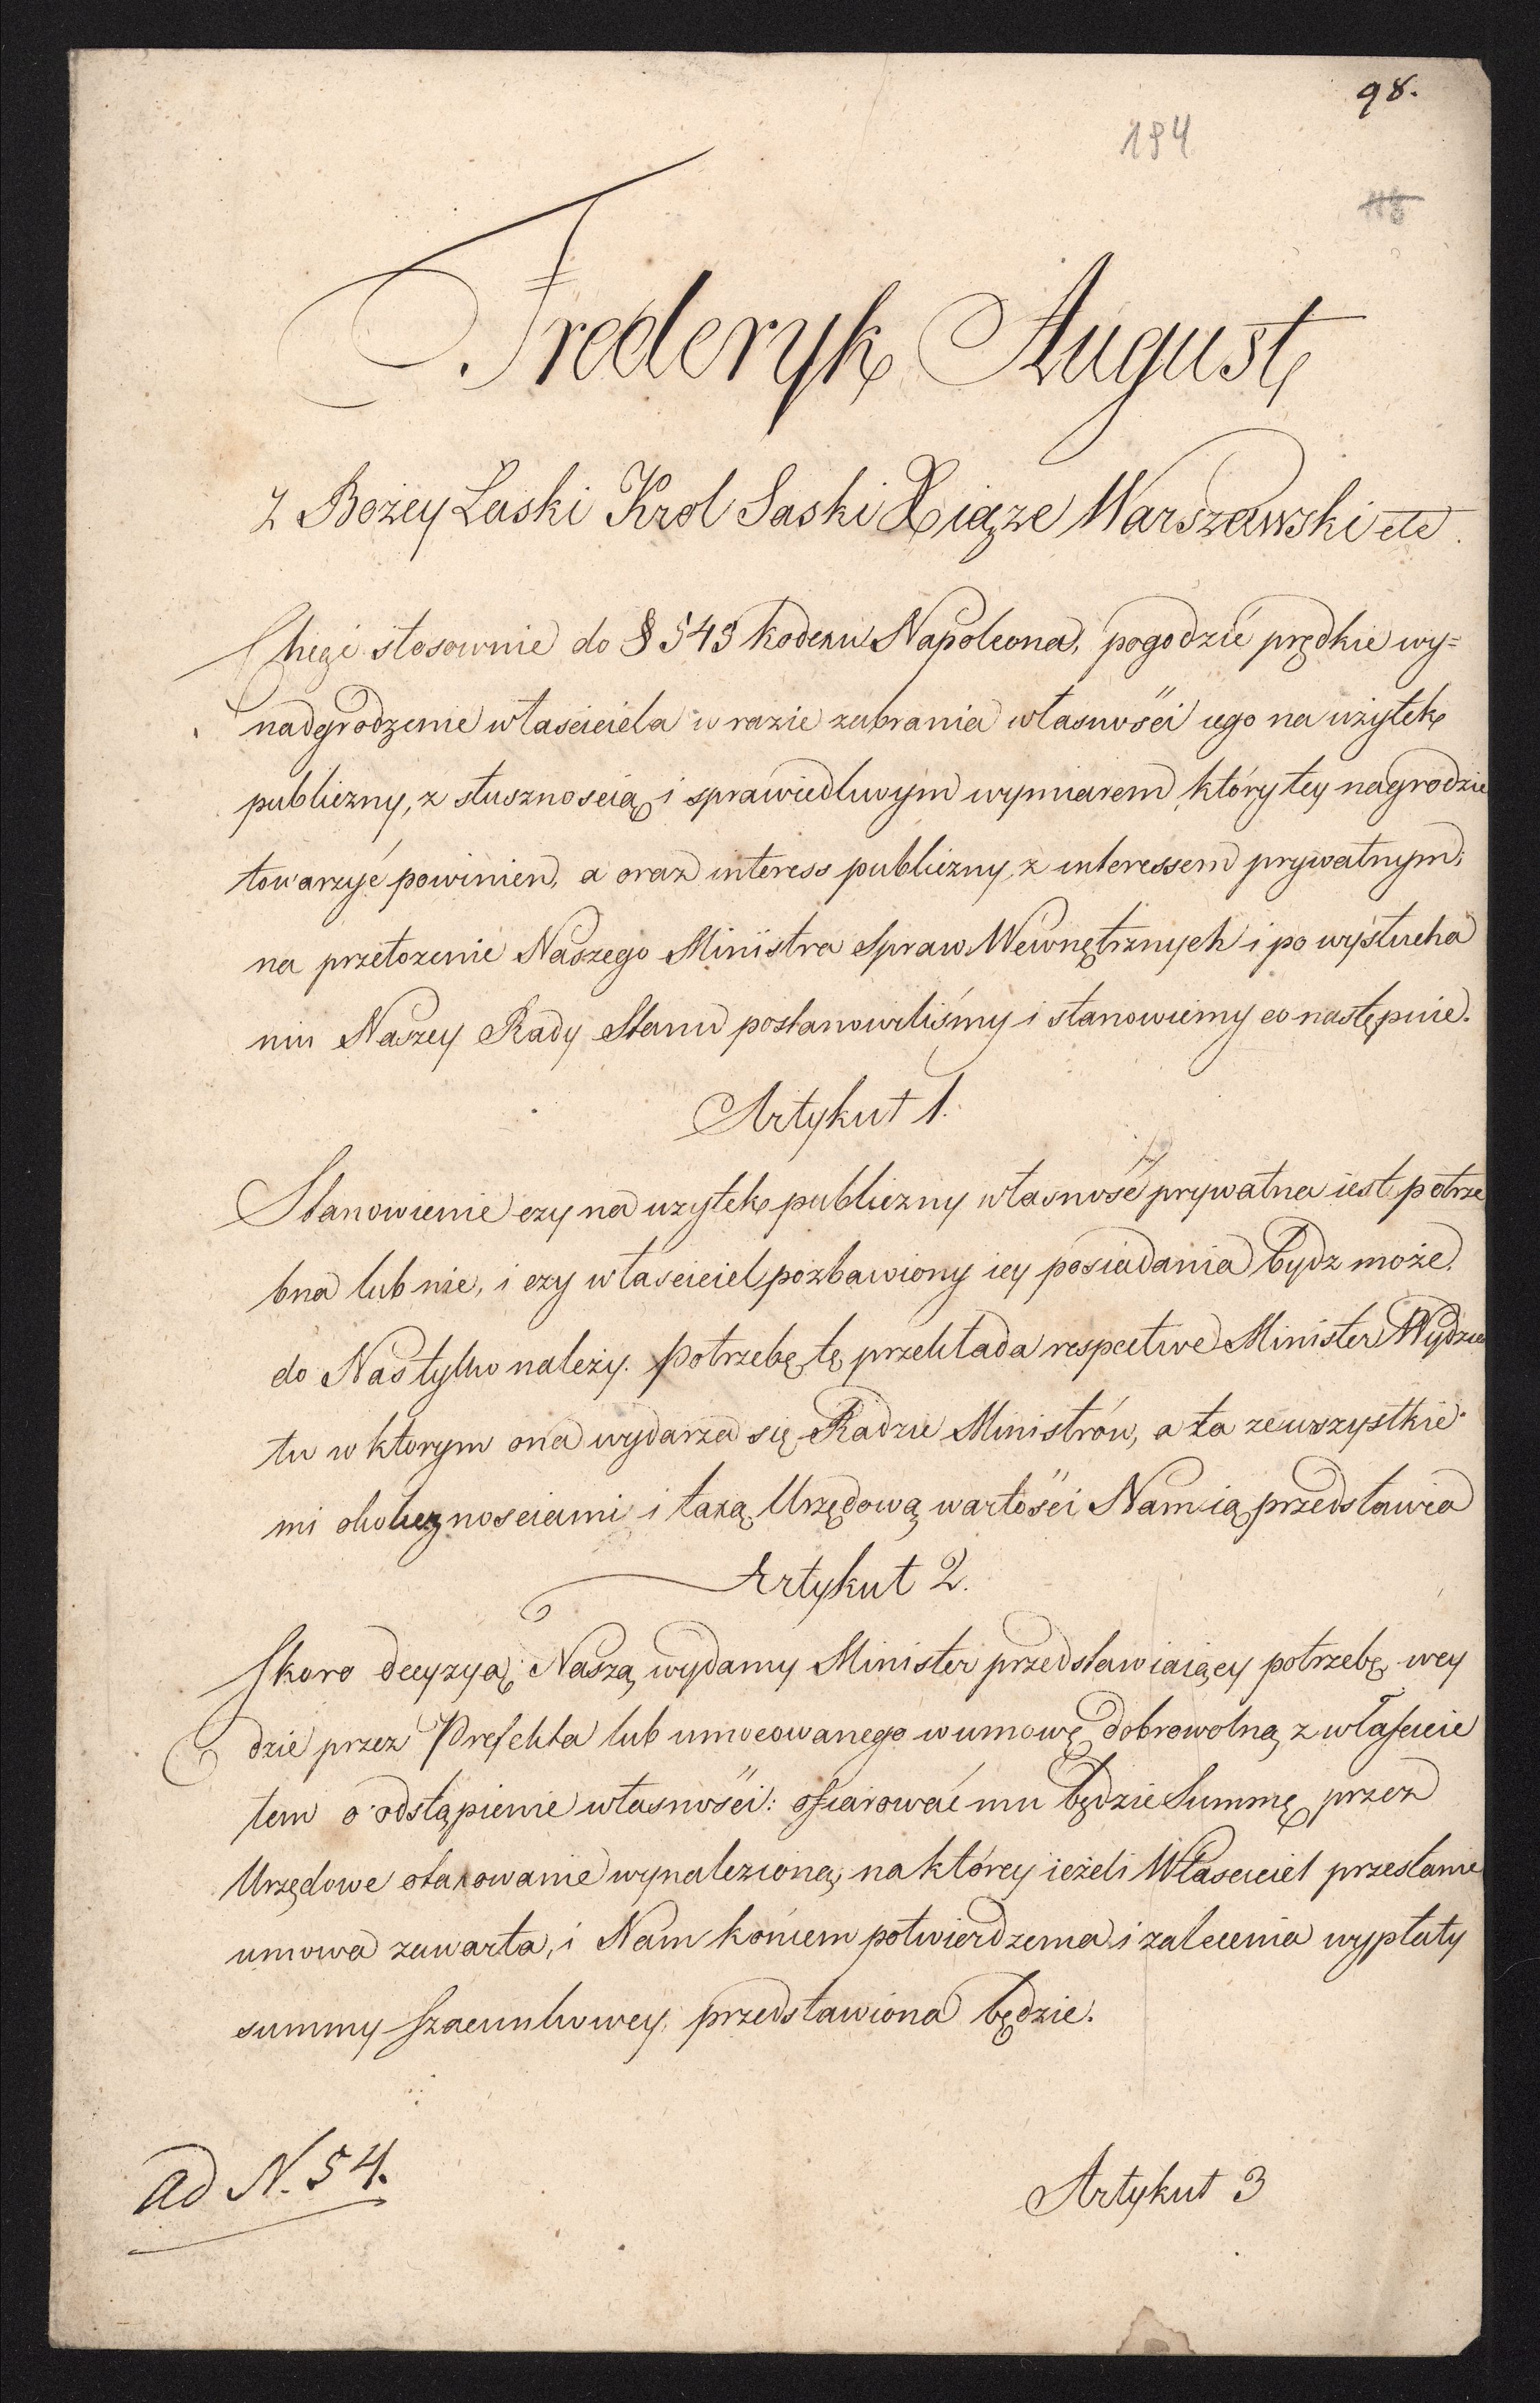 98.
194
118
Frederyk August
z Bożey Łaski Krol Saski Xiąze Warszawski etc.
Chcąc stosownie do § 545 kodexu Napoleona, pogodzić prędkie wy=
nadgrodzenie własciciela w razie zabrania własności iego na użytek
publiczny, z słusznoscią i sprawiedliwym wymiarem, który tey nagrodzie
towarzyć powinien, a oraz interess publiczny z interessem prywatnym,
na przełozenie Naszego Ministra Spraw Wewnętrznych i po wysłucha
niu Naszey Rady Stanu postanowiliśmy i stanowiemy co następuie.
Artykuł 1.
Stanowienie czy na uzytek publiczny własność prywatna iest potrze
bna lub nie, i czy własciciel pozbawiony iey posiadania bydz może,
do Nas tylko należy. Potrzebę tę przekłada respective Minister Wydzia
łu w ktorym ona wydarza się Radzie Ministrów, a ta ze wszystkie
mi okolicznosciami i taxą Urzędową wartości Nam ią przedstawia
Artykuł 2.
Skoro decyzyą Naszą wydamy Minister przedstawiaiący potrzebę wey
dzie przez Prefekta lub umocowanego w umowę dobrowolną z własciecie
lem o odstąpienie własności: ofiarować mu będzie Summę przez
Urzędowe otaxowanie wynalezioną, na którey ieżeli Właściciel przestanie
umowa zawarta, i Nam końcem potwierdzenia i zalecenia wypłaty
summy szacunkowey, przedstawiona będzie.
ad N. 54.
Artykuł 3